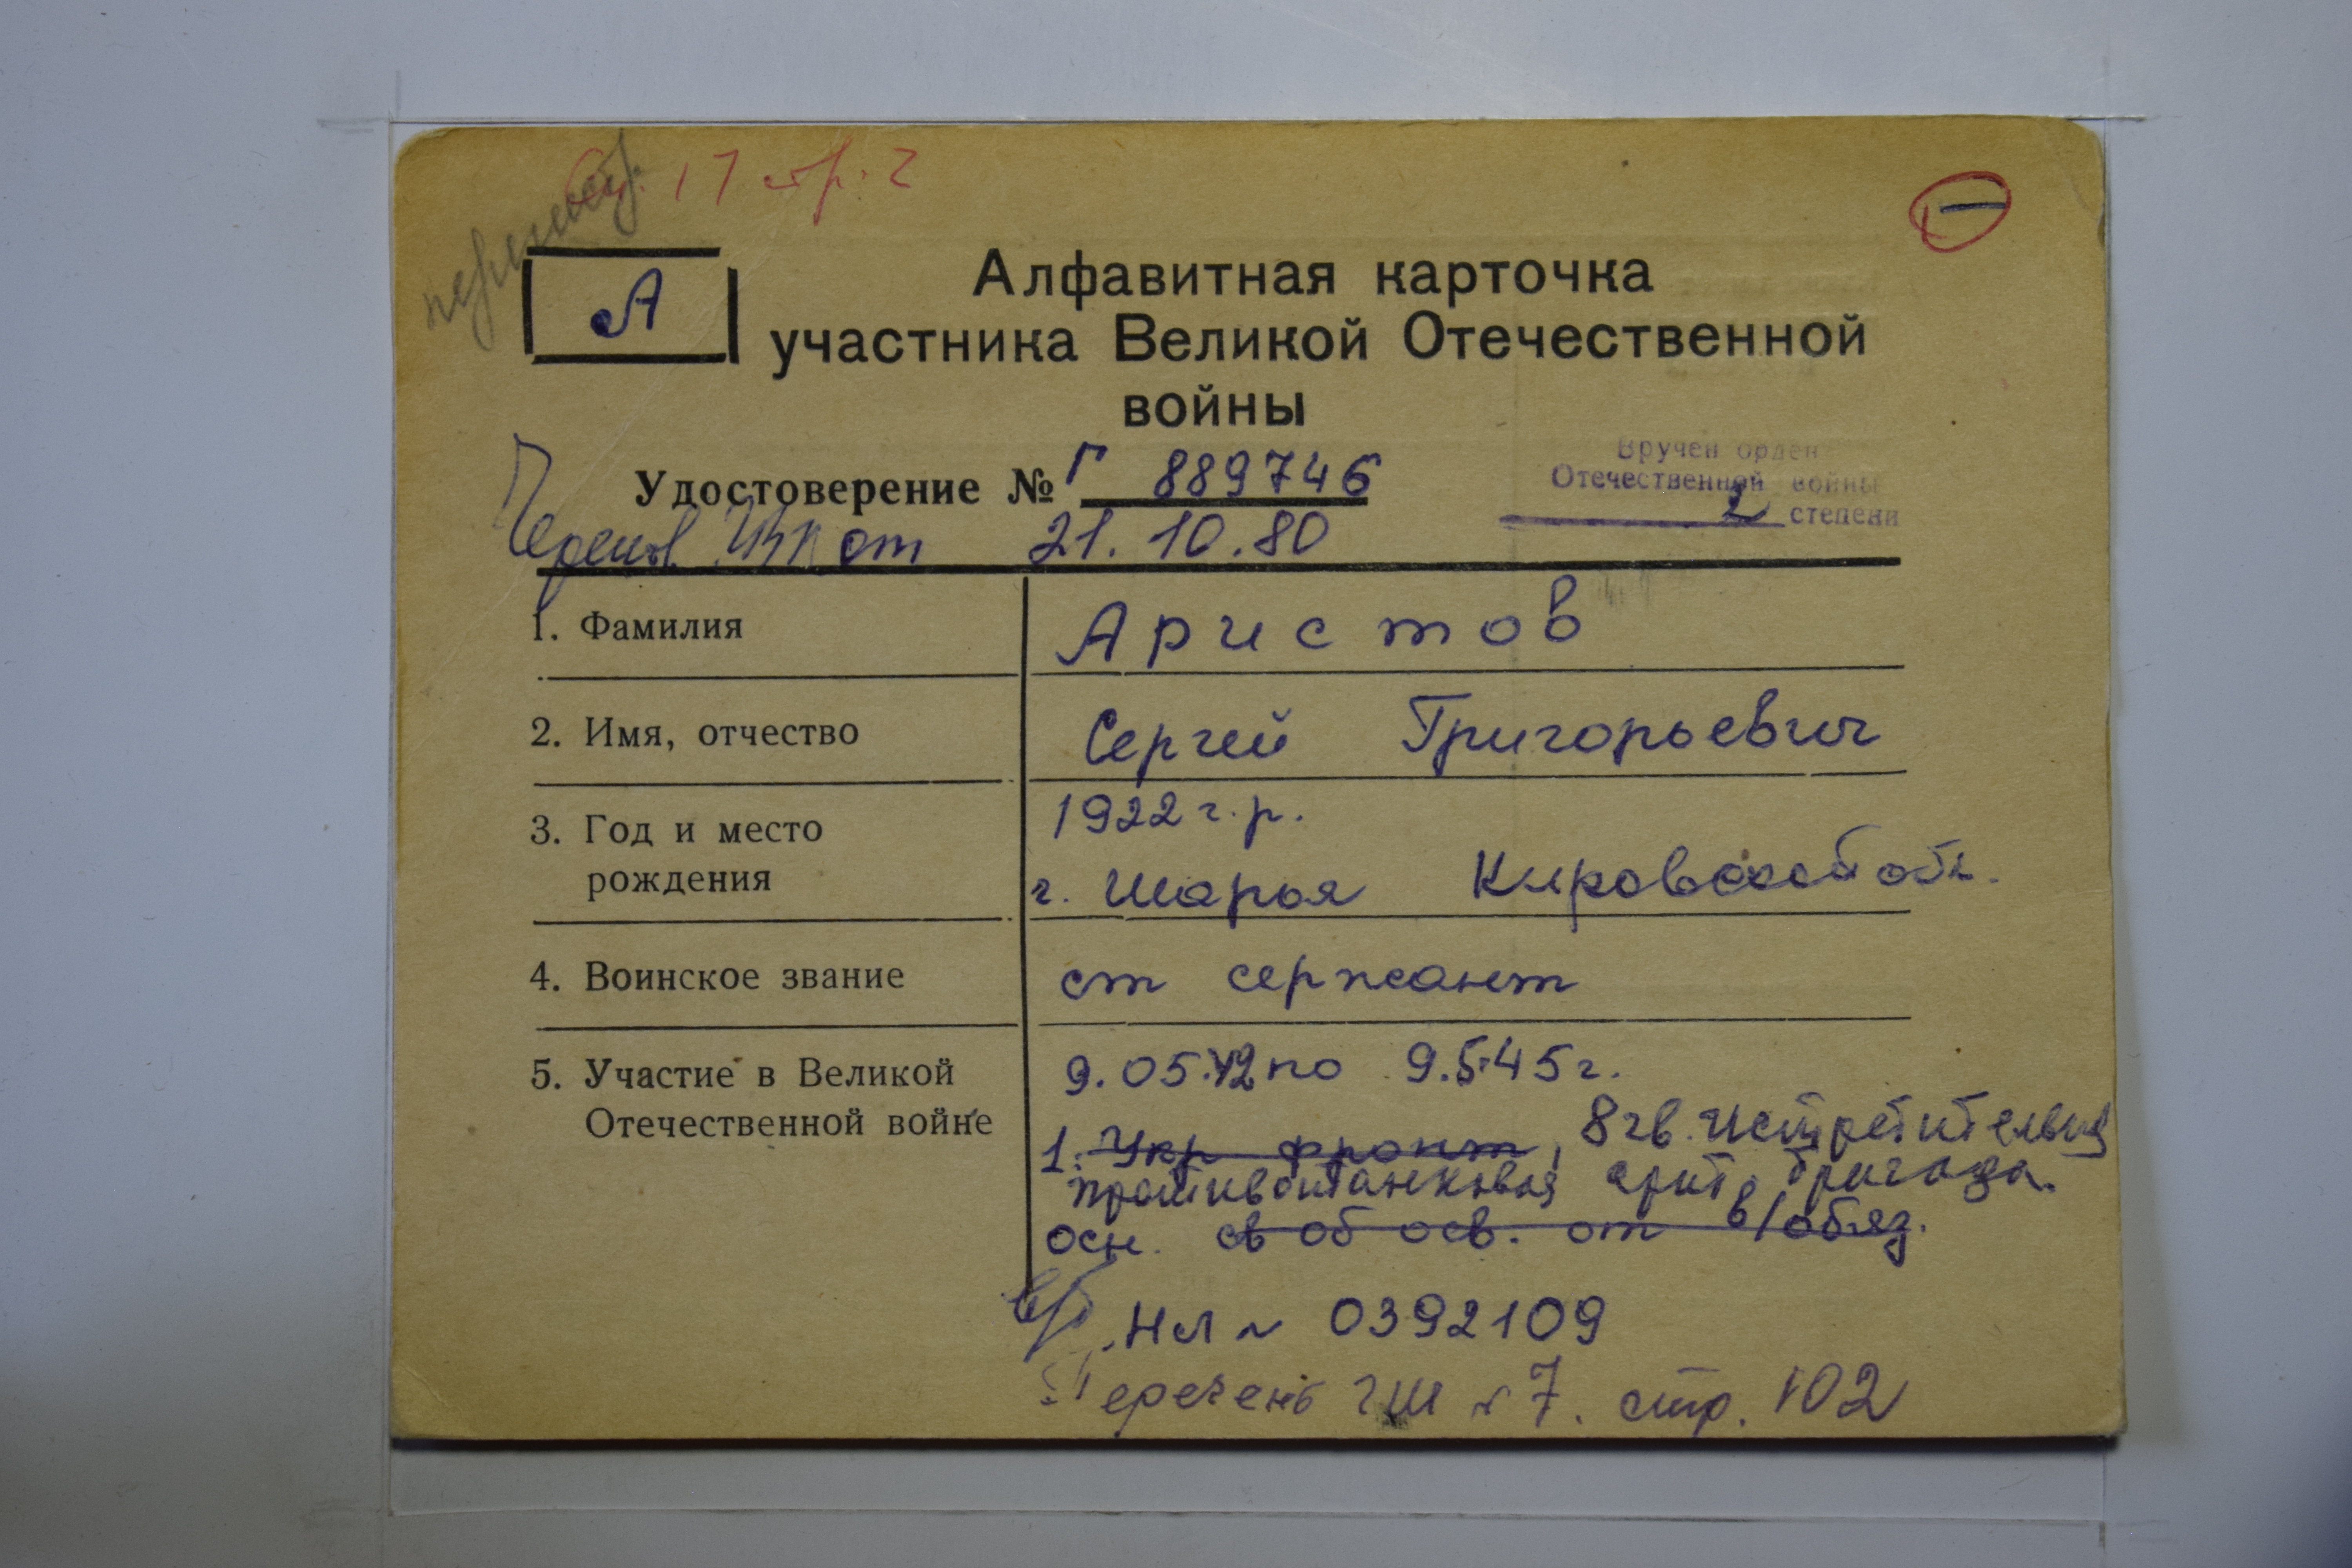 стр. 2
А
Алфавитная карточка
участника Великой Отечественной
войны
Удостоверение № Г 889746
Вручен орден
Отечественной войны
2 степени
от 21.10.80
1. Фамилия
Аристов
2. Имя, отчество
Сергей Григорьевич
3. Год и место
рождения
1922 г.р.
г. Шарья Кировской обл.
4. Воинское звание
ст сержант
5. Участие в Великой
Отечественной войне
9.05.42 по 9.5.45г.
1. Укр фронт, 8 гв. Истребительная
противотанковая арт. бригада.
осн. св об осв. от в/обяз.
в/б, НЛ № 0392109
Перечень ГШ № 7. стр. 102